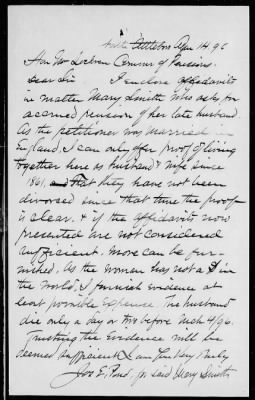 North Attleboro Apr 14 96
Hon. Wm Lochren Commr of Pensions.
Dear Sir I enclose affidavits
in matter Mary Smith who asks for
accrued pension of her late husband.
As the petitioner was married in
England, I can only offer proof of living
together here as husband & wife since
1861, and that they have not been
divorced since that time the proof
is clear. & if the affidavits now
presented are not considered
sufficient, more can be fur-
nished. As the woman has not a $ in
the world, I furnish evidence at
least possible expense. The husband
die only a day or two before Mch 4/96.
Trusting the evidence will be
deemed sufficient I am Truly
Jos E. Pond, for said Mary Smith